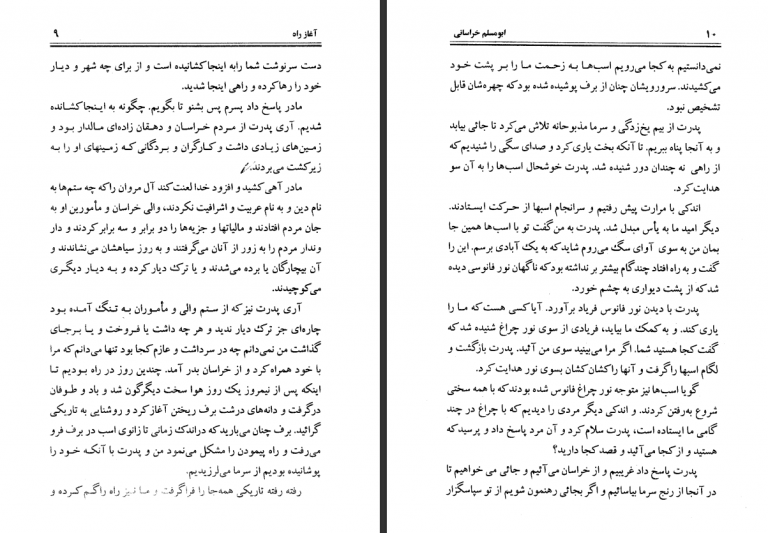 آغاز راه ۹
دست سرنوشت شما رابه اینجا کشانیده است و از برای چه شهر و دیار
خود را رها کرده و راهی اینجا شدید.
مادر پاسخ داد پسرم پس بشنو تا بگویم. چگونه به اینجا کشانده
شدیم. آری پدرت از مردم خراسان و دهقان زاده‌ای مالدار بود و
زمین‌های زیادی داشت و کارگران و بردگانی که زمینهای او را به
زیرکشت می‌بردند.
مادر آهی کشید و افزود خدا لعنت کند آل مروان را که چه ستم‌ها به
نام دین و به نام عربیت و اشرافیت نکردند، والی خراسان و مأمورین او به
جان مردم افتادند و مالیاتها و جزیه‌ها را دو برابر و سه برابر کردند و دار
وندار مردم را به زور از آنان می‌گرفتند و به روز سیاهشان می‌نشاندند و
آن بیچارگان یا برده می‌شدند و یا ترک دیار کرده و به دیار دیگری
می‌کوچیدند.
آری پدرت نیز که از ستم والی و مأموران به تنگ آمده بود
چاره‌ای جز ترک دیار ندید و هر چه داشت یا فروخت و یا برجای
گذاشت من نمی‌دانم چه در سر داشت و عازم کجا بود تنها می‌دانم که مرا
با خود همراه کرد و از خراسان بدر آمد. چندین روز در راه بودیم تا
اینکه پس از نیمروز یک روز هوا سخت دیگرگون شد و باد و طوفان
درگرفت و دانه‌های درشت برف ریختن آغاز کرد و روشنایی به تاریکی
گرائید. برف چنان می‌بارید که دراندک زمانی تا زانوی اسب در برف فرو
می‌رفت و راه پیمودن را مشکل می‌نمود من و پدرت با آنکه خود را
پوشانیده بودیم از سرما می‌لرزیدیم.
رفته رفته تاریکی همه‌جا را فراگرفت و ما نیز راه راگم کرده و
۱۰ ابومسلم خراسانی
نمی‌دانستیم به کجا می‌رویم اسب‌ها به زحمت ما را بر پشت خود
می‌کشیدند. سرورویشان چنان از برف پوشیده شده بود که چهره‌شان قابل
تشخیص نبود.
پدرت از بیم یخ‌زدگی و سرما مذبوحانه تلاش می‌کرد تا جائی بیابد
و به آنجا پناه ببریم. تا آنکه بخت یاری کرد و صدای سگی را شنیدیم که
از راهی نه چندان دور شنیده شد. پدرت خوشحال اسب‌ها را به آن سو
هدایت کرد.
اندکی با مرارت پیش رفتیم و سرانجام اسبها از حرکت ایستادند.
دیگر امید ما به یأس مبدل شد. پدرت به من گفت تو با اسب‌ها همین جا
بمان من به سوی آوای سگ می‌روم شاید که به یک آبادی برسم. این را
گفت و به راه افتاد چندگام بیشتر بر نداشته بود که ناگهان نور فانوسی دیده
شد که از پشت دیواری به چشم خورد.
پدرت با دیدن نور فانوس فریاد برآورد. آیا کسی هست که ما را
یاری کند. و به کمک ما بیاید، فریادی از سوی نور چراغ شنیده شد که
گفت کجا هستید شما. اگر مرا می‌بینید سوی من آئید. پدرت بازگشت و
لگام اسبها را گرفت و آنها را کشان کشان بسوی نور هدایت کرد.
گویا اسب‌ها نیز متوجه نور چراغ فانوس شده بودند که با همه سختی
شروع به‌رفتن کردند. و اندکی دیگر مردی را دیدیم که با چراغ در چند
گامی ما ایستاده است، پدرت سلام کرد و آن مرد پاسخ داد و پرسید که
هستید و از کجا می‌آئید و قصد کجا دارید؟
پدرت پاسخ داد غریبیم و از خراسان می‌آئیم و جائی می خواهیم تا
در آنجا از رنج سرما بیاسائیم و اگر بجائی رهنمون شویم از تو سپاسگزار